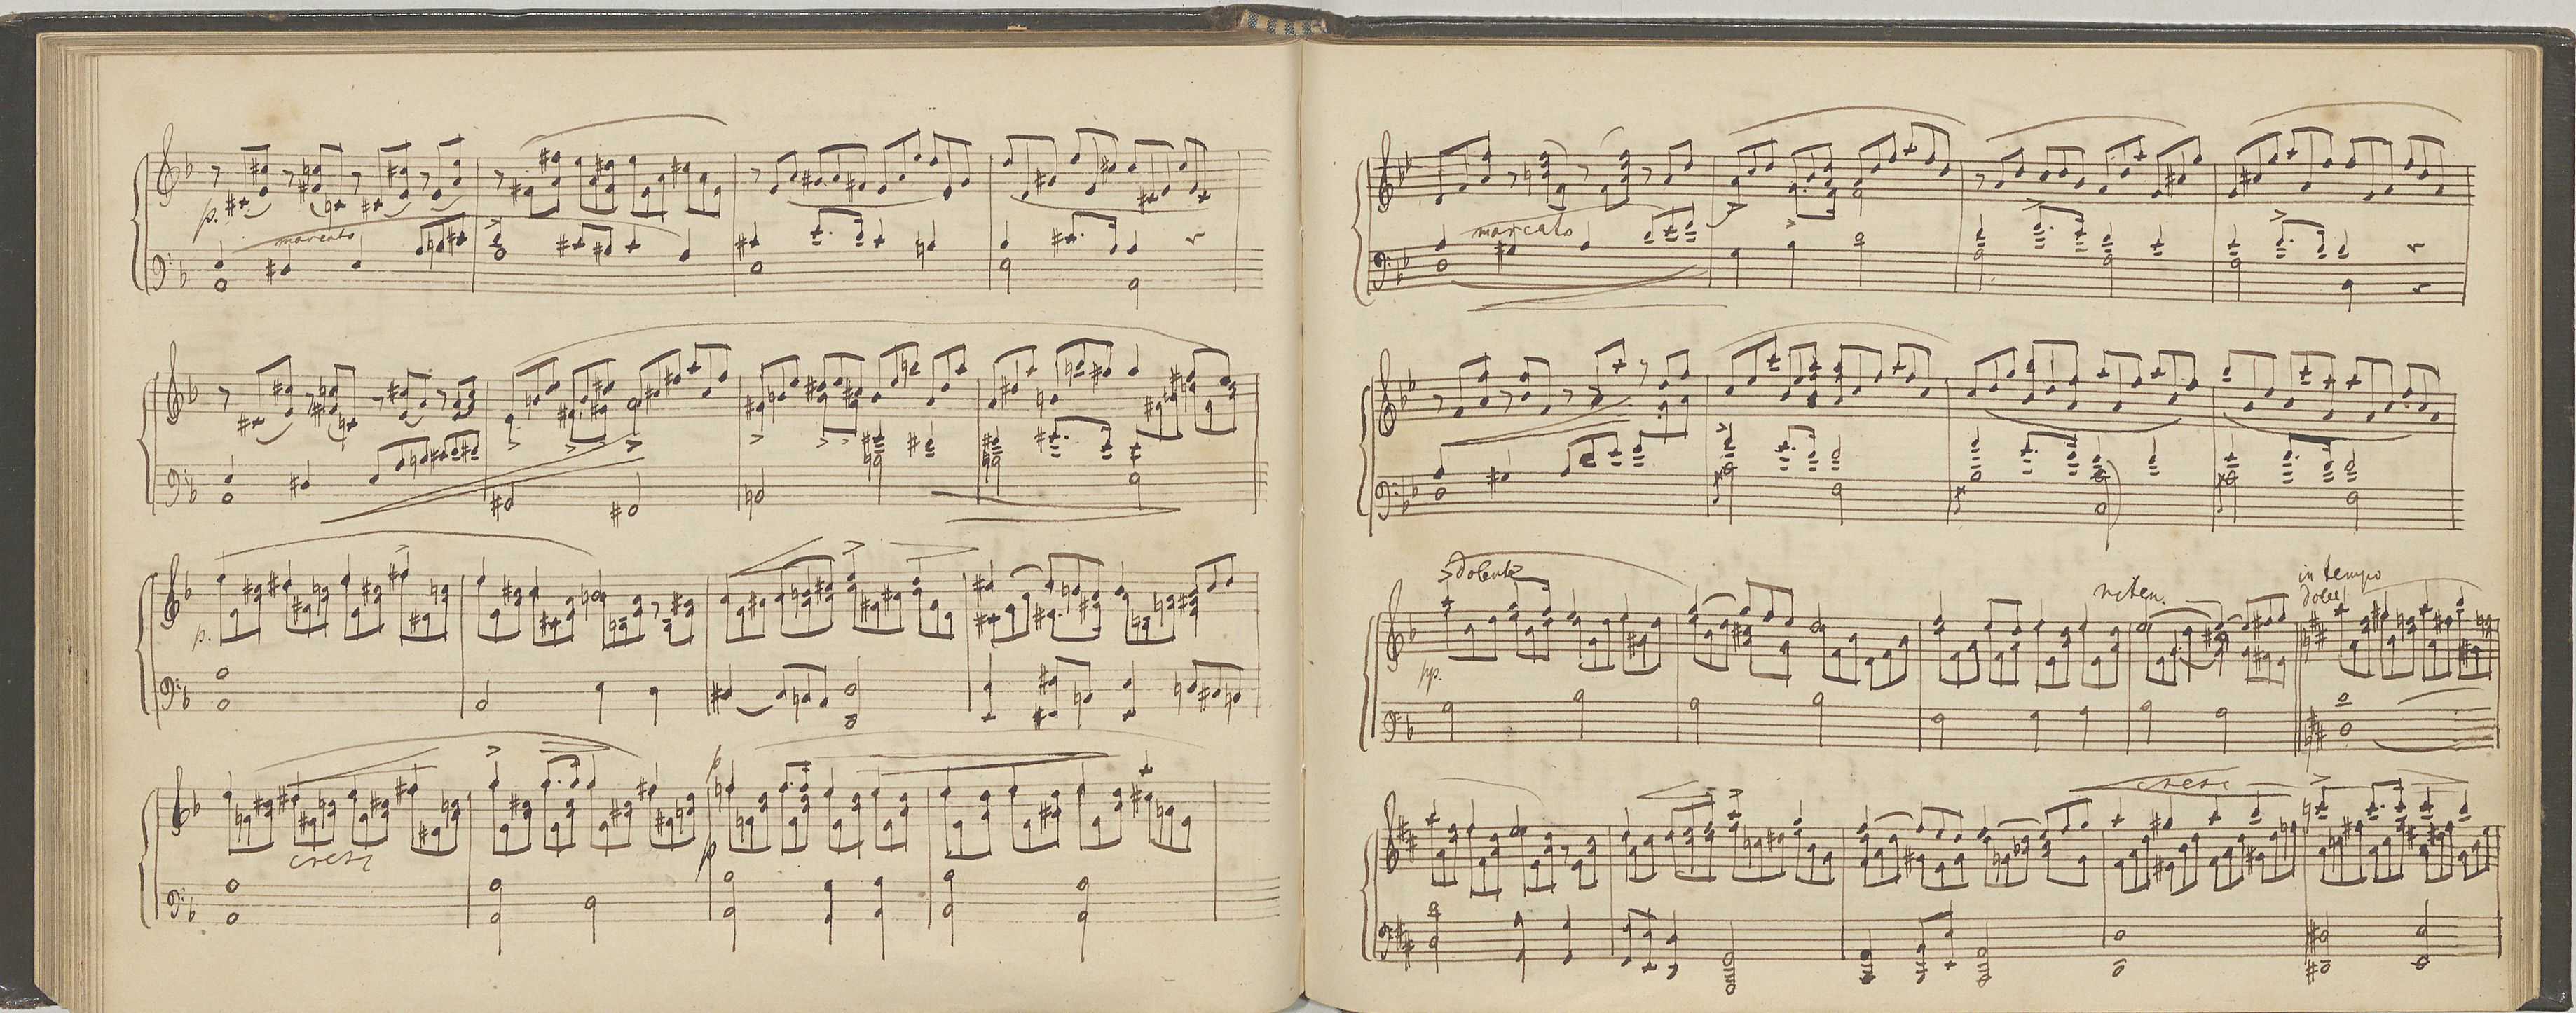 p.
marcato
p.
cresc
p
p
marcato
dolente
pp.
riten.
in tempo
dolce
cresc